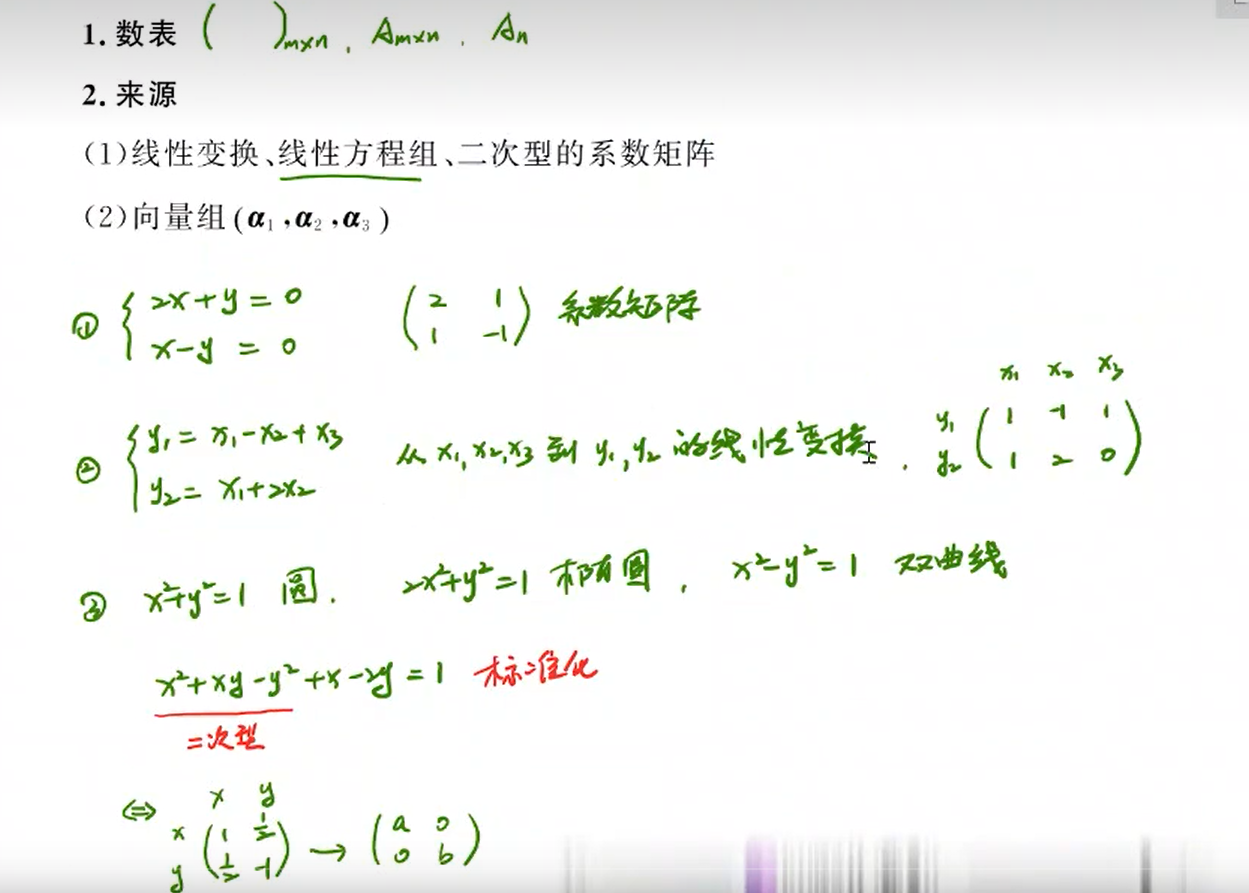 1. 数表 (   )m×n , Am×n , An
2. 来源
(1)线性变换、线性方程组、二次型的系数矩阵
(2)向量组(α₁,α₂,α₃)
① { 2x+y=0   ( 2 1   系数矩阵
x-y=0   1 -1 )
x₁ x₂ x₃
② { y₁=x₁-x₂+x₃   从x₁,x₂,x₃到y₁,y₂的线性变换.   y₁ ( 1 -1 1
y₂=x₁+2x₂   y₂ 1 2 0 )
③ x²+y²=1 圆.   2x²+y²=1 椭圆,   x²-y²=1 双曲线
x²+xy-y²+x-2y=1 标准化
二次型
⇔   x y
x ( 1 1/2   → ( a 0
y 1/2 -1 )   0 b )